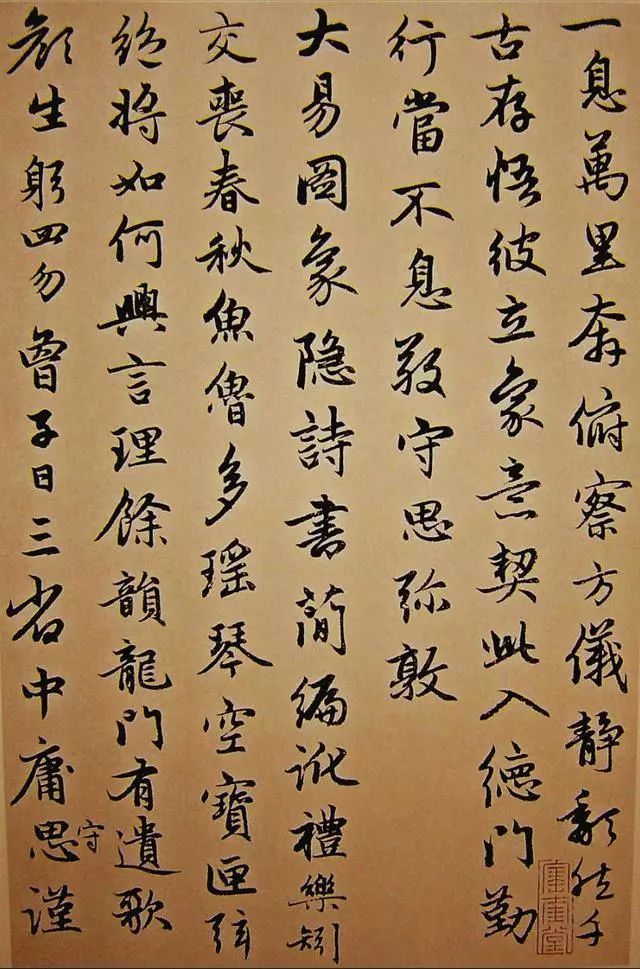 一息萬里奔俯察方儀靜頹然千
古存悟彼立象意契此入德門勤
行當不息敬守思弥敦
大易圖象隐詩書簡編訛禮樂矧
交喪春秋魚魯多瑶琴空寶匣弦
絕將如何興言理餘韻龍門有遺歌
顏生躬四勿曾子日三省中庸思謹
守